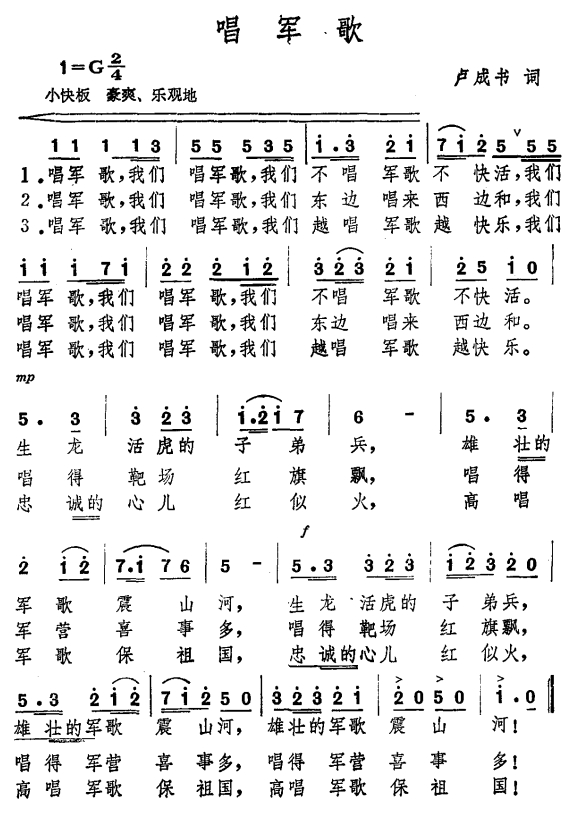 唱军歌
1=G 2/4
小快板 豪爽、乐观地
卢成书 词
1 1 1 1 3 | 5 5 5 3 5 | i . 3 2 i | 7 i 2 5 5 5
1.唱军 歌,我们 唱军歌,我们 不唱 军歌 不 快活,我们
2.唱军 歌,我们 唱军歌,我们 东边 唱来 西 边和,我们
3.唱军 歌,我们 唱军歌,我们 越唱 军歌 越 快乐,我们
i i i 7 i | 2 2 2 i 2 | 3 2 3 2 i | 2 5 i 0
唱军 歌,我们 唱军 歌,我们 不唱 军歌 不快 活。
唱军 歌,我们 唱军 歌,我们 东边 唱来 西边 和。
唱军 歌,我们 唱军 歌,我们 越唱 军歌 越快 乐。
mp
5 . 3 | 3 2 3 | i . 2 i 7 | 6 - | 5 . 3
生 龙 活 虎的 子 弟 兵, 雄 壮的
唱 得 靶 场 红 旗 飘, 唱 得
忠 诚的 心 儿 红 似 火, 高 唱
f
2 i 2 | 7 . i 7 6 | 5 - | 5 . 3 3 2 3 | i 2 3 2 0
军 歌 震 山 河, 生 龙 活虎的 子 弟兵,
军 营 喜 事 多, 唱得 靶场 红 旗飘,
军 歌 保 祖 国, 忠 诚的心儿 红 似火,
5 . 3 2 i 2 | 7 i 2 5 0 | 3 2 3 2 i | 2 0 5 0 | i . 0
雄 壮的军歌 震 山河, 雄壮的军歌 震 山 河!
唱得 军营 喜 事多, 唱得 军营 喜 事 多!
高唱 军歌 保 祖国, 高唱 军歌 保 祖 国!